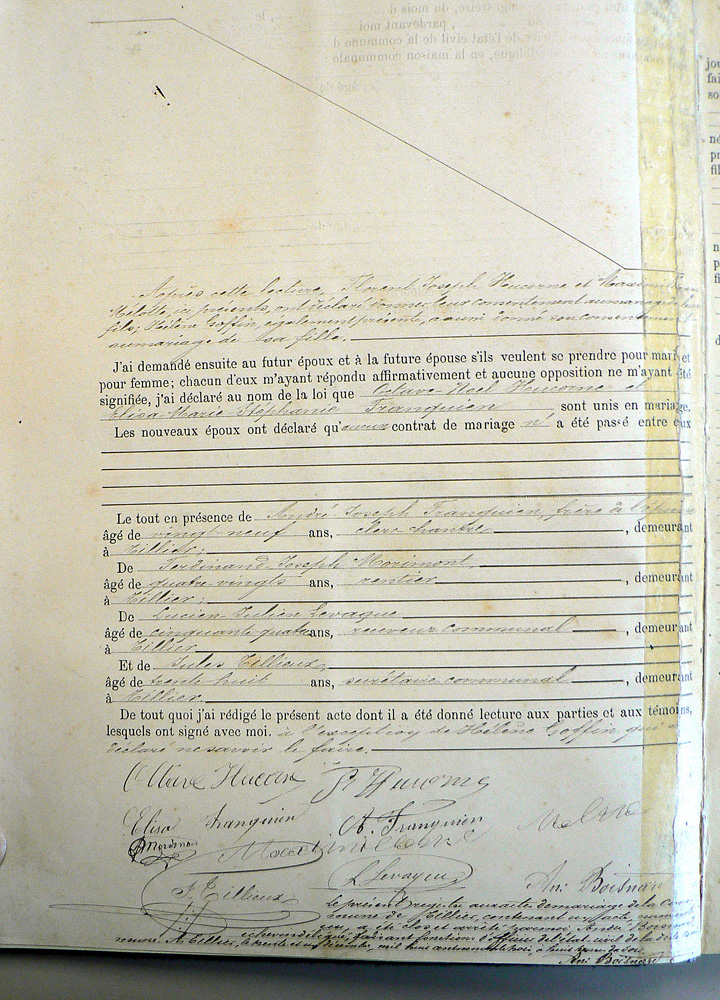 Après cette lecture, Florent Joseph Hucorne et
Mélotte, ici présents, ont déclaré donner leur consentement au mariage de leur
fils; Hélène Goffin, également présente, a aussi donné son consentement
au mariage de sa fille.
J'ai demandé ensuite au futur époux et à la future épouse s'ils veulent se prendre pour mari et
pour femme; chacun d'eux m'ayant répondu affirmativement et aucune opposition ne m'ayant été
signifiée, j'ai déclaré au nom de la loi que Octave Noël Hucorne et
Elisa Marie Stéphanie Franquien sont unis en mariage.
Les nouveaux époux ont déclaré qu'aucun contrat de mariage n' a été passé entre eux
Le tout en présence de André Joseph Franquien, frère de l'épouse
âgé de vingt neuf ans, clerc chantre, demeurant
à Tillier;
De Ferdinand Joseph Morimont,
âgé de quatre-vingts ans, rentier, demeurant
à Tillier;
De Lucien Julien Levaque
âgé de cinquante quatre ans, receveur communal, demeurant
à Tillier
Et de Jules Tillieux,
âgé de trente huit ans, secrétaire communal, demeurant
à Tillier.
De tout quoi j'ai rédigé le présent acte dont il a été donné lecture aux parties et aux témoins,
lesquels ont signé avec moi. à l'exception de Hélène Goffin, qui a
déclaré ne savoir le faire.
Octave Hucorne F Hucorne
Elisa Franquien A. Franquien
Morimont
J. Tillieux L Levaque An: Boisnard
Le présent registre aux actes de mariage de la Com-
mune de Tillier, contenant
a été clos et arrêté par moi, André Boisnard
échevin délégué, faisant fonctions d'officier de l'état civil de la dite Com-
mune. A Tillier, le trente et un décembre, mil huit cent
An: Boisnard